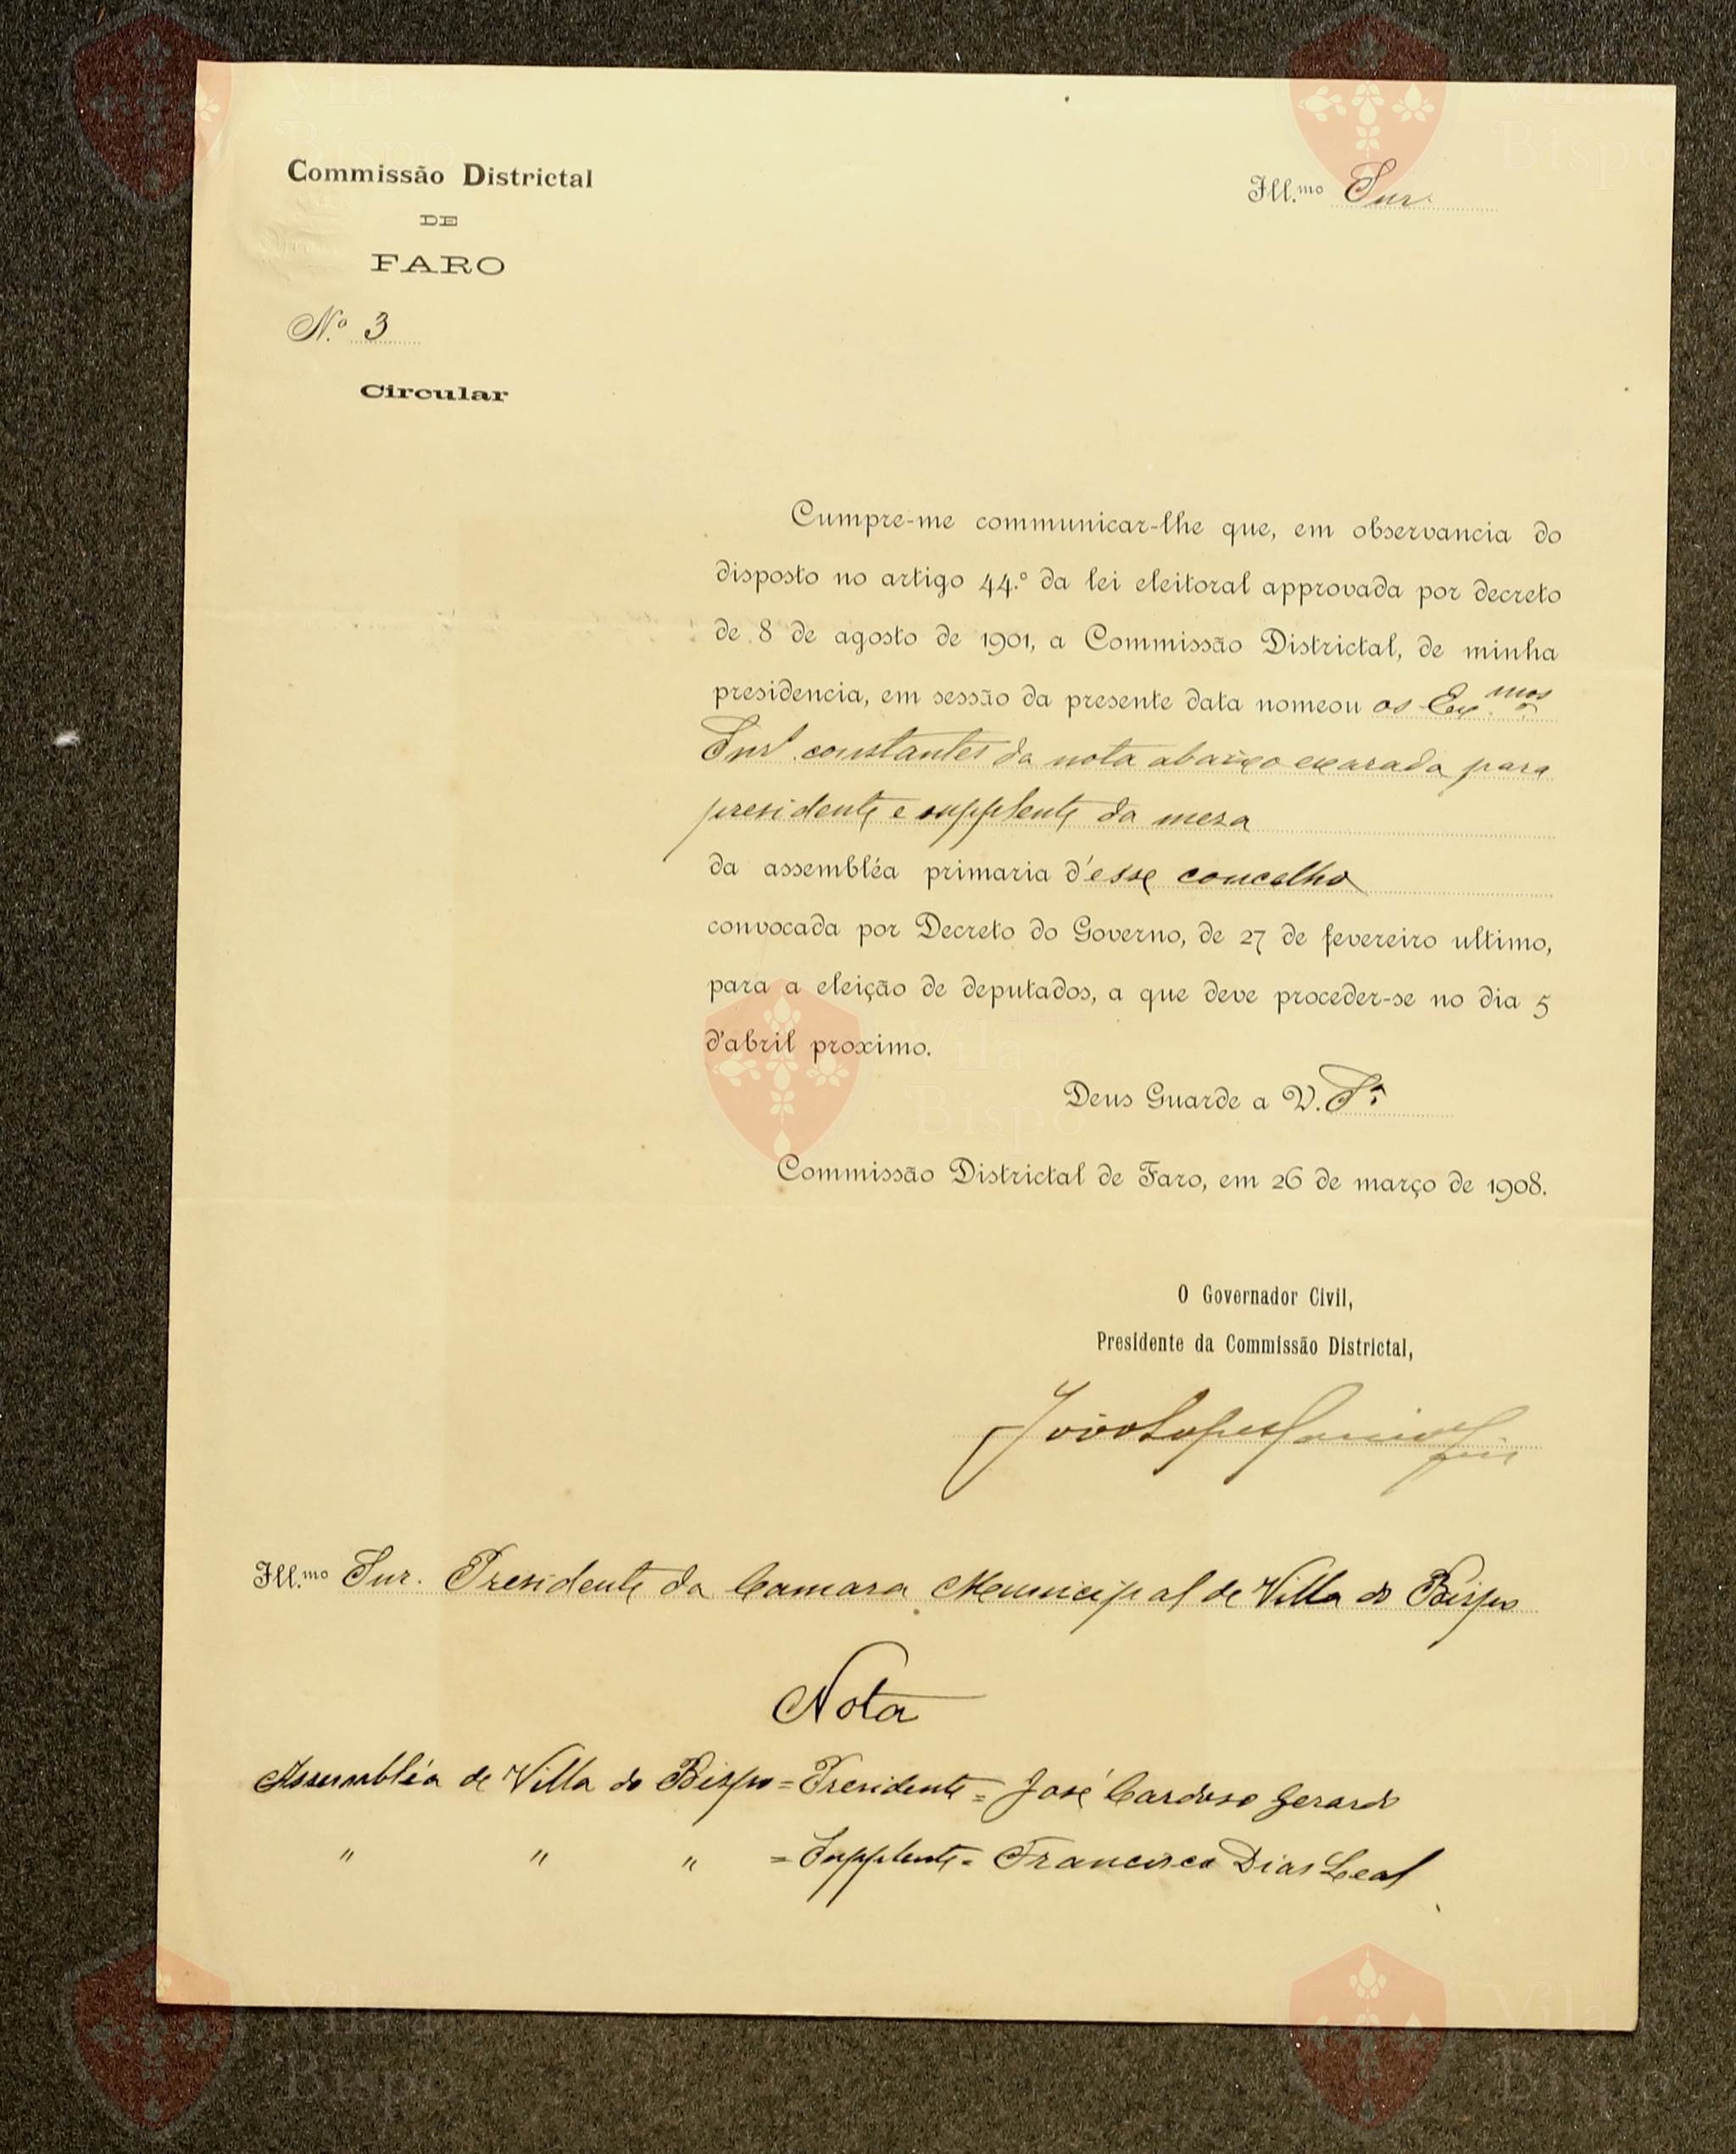 Commissão Districtal
DE
FARO
N.º 3
Circular
Ill.mo Snr.
Cumpre-me communicar-lhe que, em observancia do
disposto no artigo 44.º da lei eleitoral approvada por decreto
de 8 de agosto de 1901, a Commissão Districtal, de minha
presidencia, em sessão da presente data nomeou os Ex.mos
Snrs. constantes da nota abaixo exarada para
presidente e supplente da meza
da assembléa primaria d'esse concelho
convocada por Decreto do Governo, de 27 de fevereiro ultimo,
para a eleição de deputados, a que deve proceder-se no dia 5
d'abril proximo.
Deus Guarde a V. S.ª
Commissão Districtal de Faro, em 26 de março de 1908.
O Governador Civil,
Presidente da Commissão Districtal,
João Lopes
Ill.mo Snr. Presidente da Camara Municipal de Villa do Bispo
Nota
Assembléa de Villa do Bispo = Presidente = José Cardoso Gerardo
" " " = Supplente = Francisco Dias Leal
Vila do
Bispo